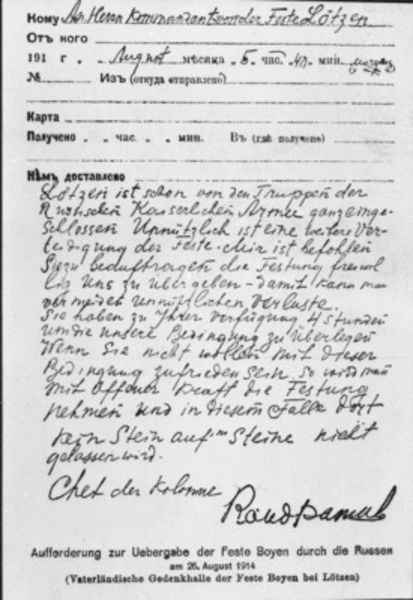 Кому An Herrn Kommandanten der Feste Lötzen
Отъ кого
191 г. August мѣсяца 5 час. 40 мин.
№ Изъ (откуда отправлено)
Карта
Получено час. мин. Въ (гдѣ получено)
Кѣмъ доставлено
Lötzen ist schon von den Truppen der
Russischen Kaiserlichen Armee ganz einge-
schlossen Unnützlich ist eine weitere Ver-
teidigung der Feste. Mir ist befohlen
Sie zu beauftragen die Festung freiwil
lig uns zu übergeben - damit kann man
vermeiden unnützlichen Verluste.
Sie haben zu Ihrer Verfügung 4 Stunden
um die unsere Bedingung zu überlegen
Wenn Sie nicht wollen mit dieser
Bedingung zufrieden sein so wird man
mit offener Kraft die Festung
nehmen und in diesem Falle dort
kein Stein auf'm Steine nicht
gelassen wird.
Chef der Kolonne
Aufforderung zur Uebergabe der Feste Boyen durch die Russen
am 26. August 1914
(Vaterländische Gedenkhalle der Feste Boyen bei Lötzen)